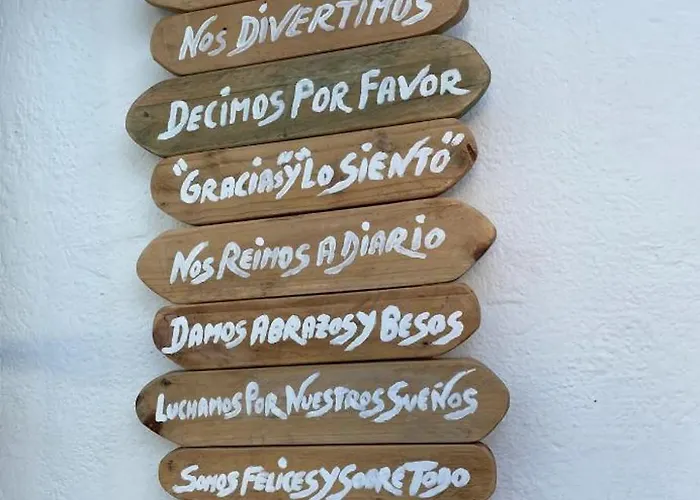 NOS DIVERTIMOS
DECIMOS POR FAVOR
"GRACIAS" Y "LO SIENTO"
NOS REIMOS A DIARIO
DAMOS ABRAZOS Y BESOS
LUCHAMOS POR NUESTROS SUEÑOS
SOMOS FELICES Y SOBRE TODO